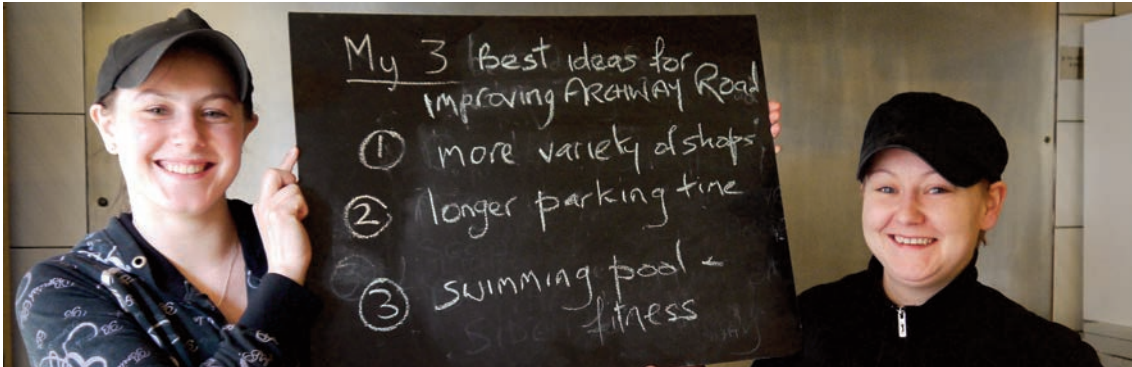 My 3 Best ideas for
improving ARCHWAY Road
① more variety of shops
② longer parking time
③ swimming pool -
fitness